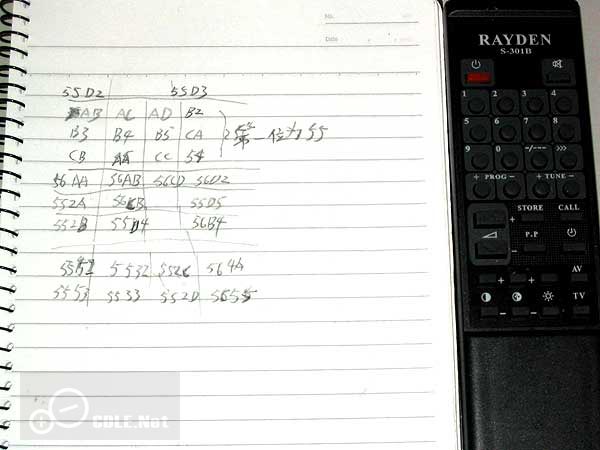 No.
Date
55D2 55D3
AB AC AD B2
B3 B4 B5 CA 第一位为55
CB AA CC 54
56AA 56AB 56CD 56D2
552A 56CB 55D5
552B 55D4 56B4
5552 5532 552C 564A
5553 5533 552D 5655
CDLE.Net
RAYDEN
S-301B
1 2 3 4
5 6 7 8
9 0 -/--- >>>
+ PROG - + TUNE -
STORE CALL
+ P.P
-
+ + AV
TV
- - -